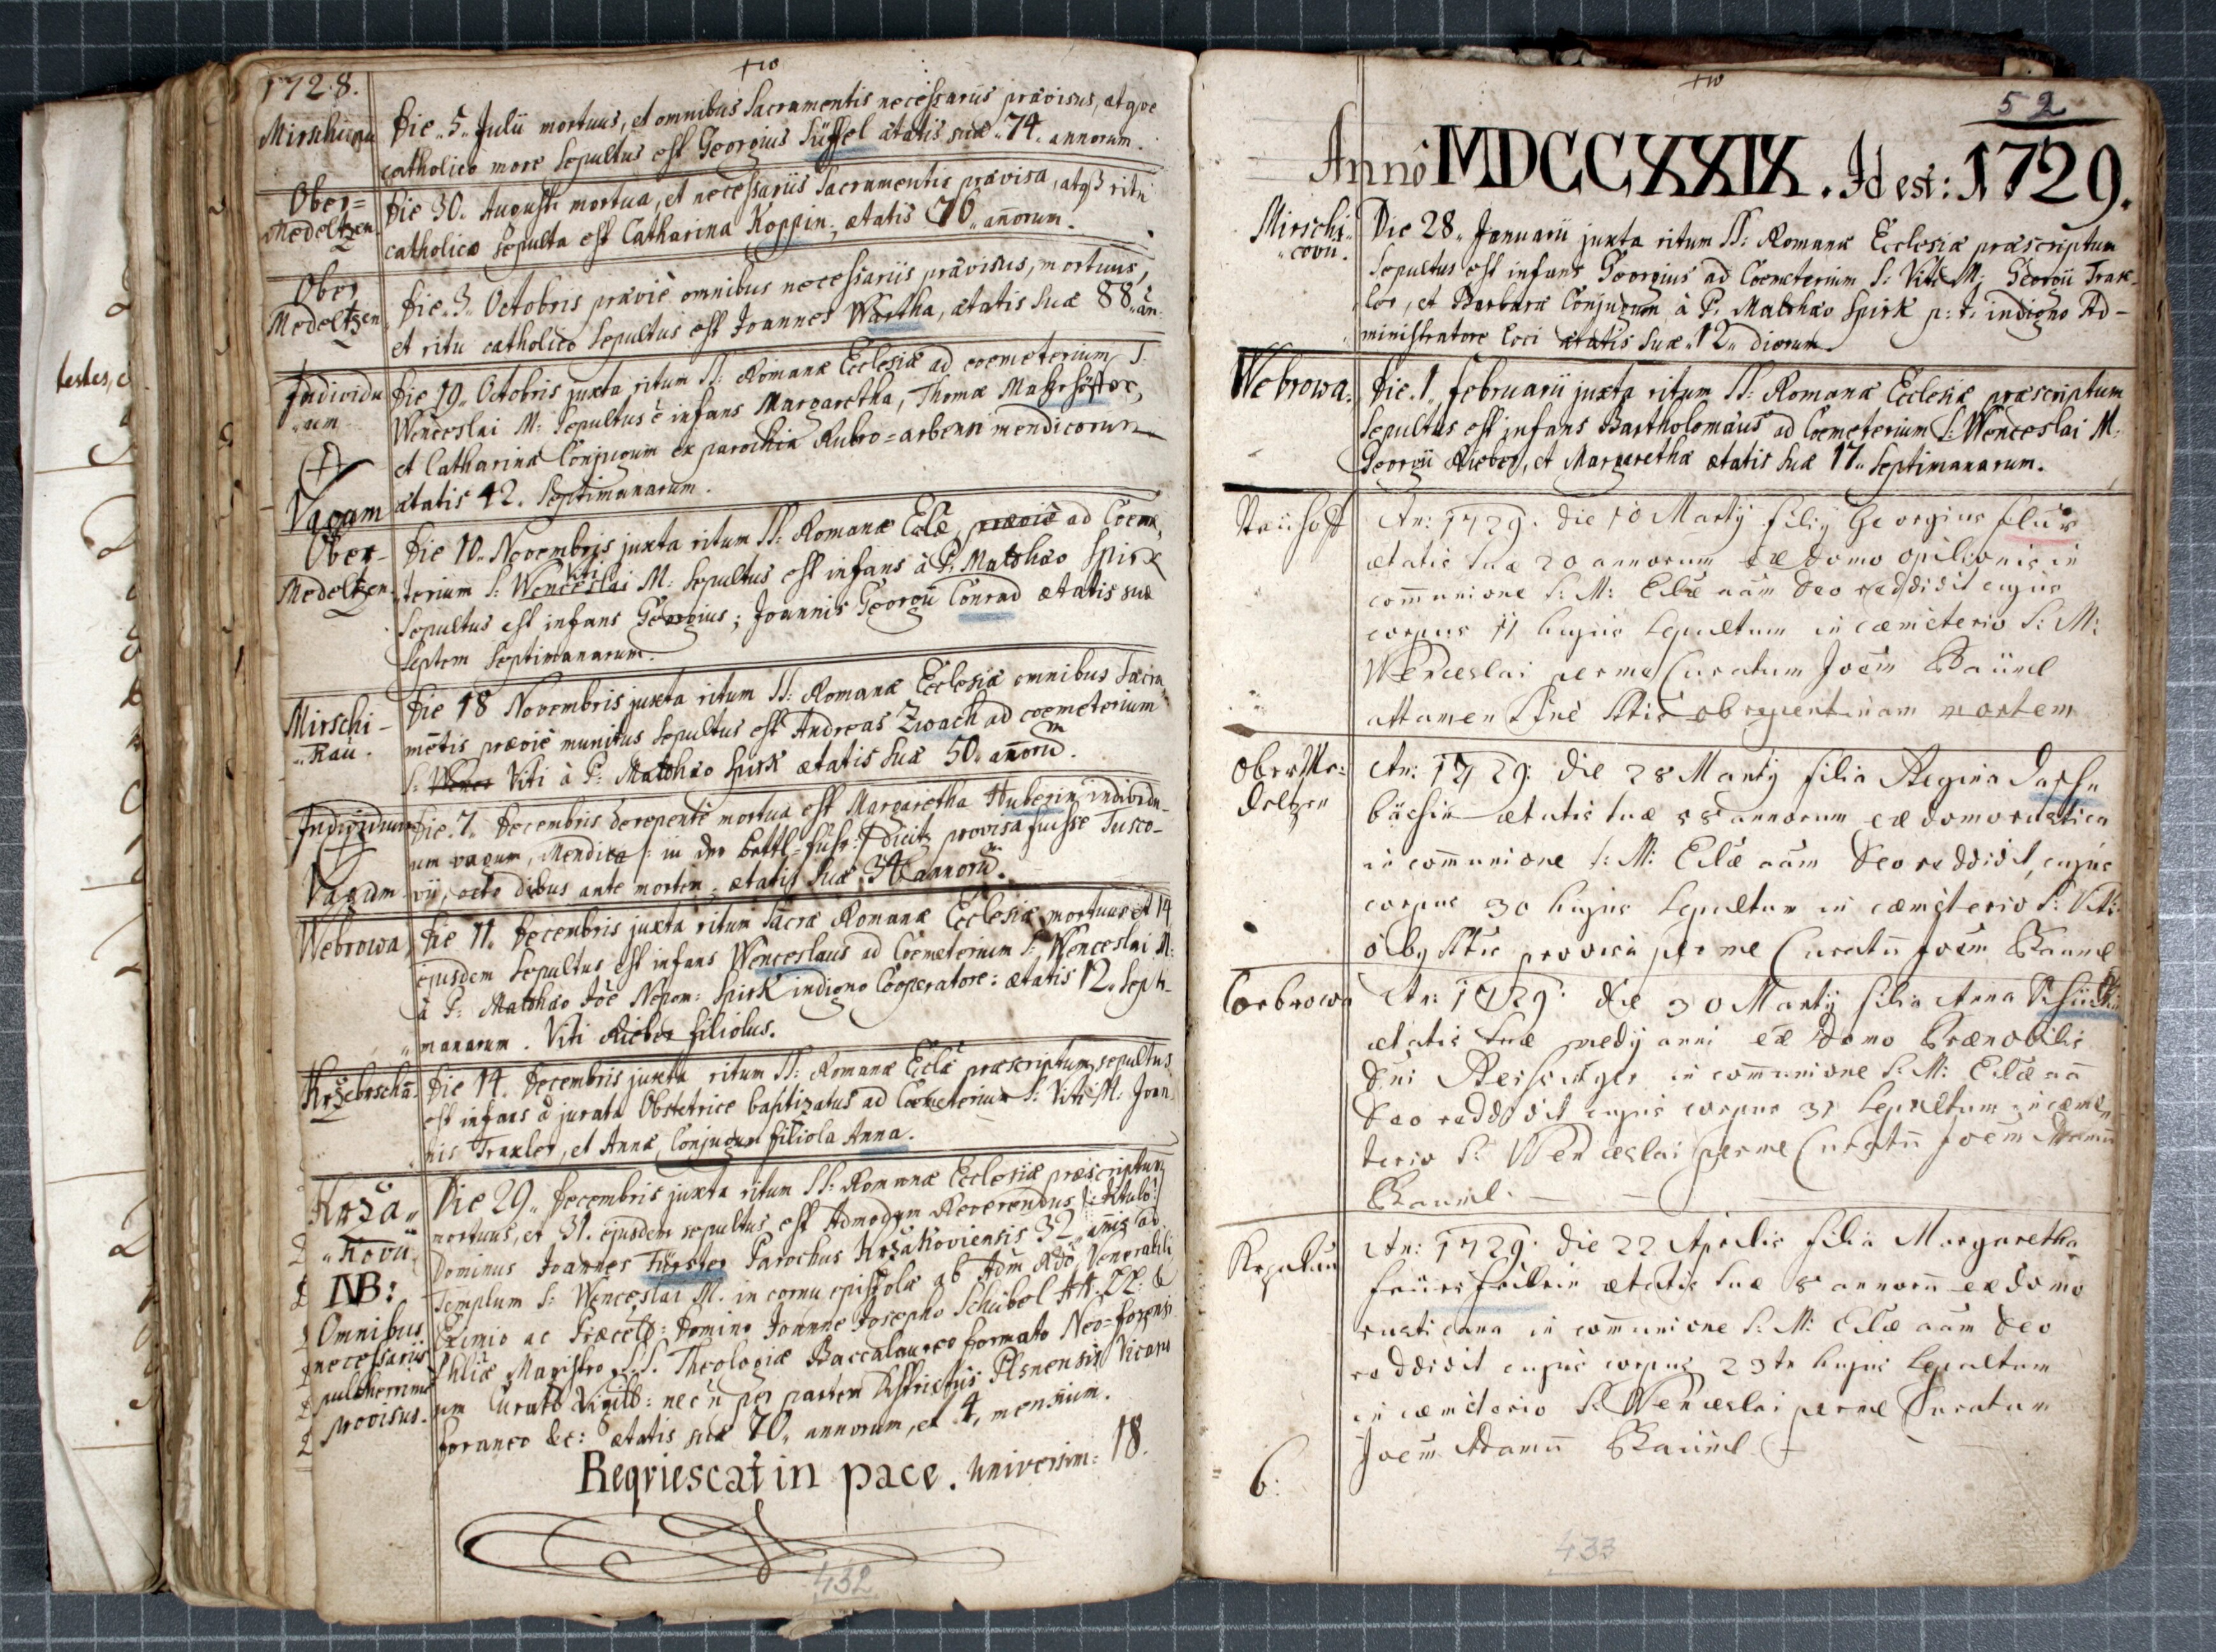 testes, e
1728.
Mirschicau
Die „5„ Julii mortuus, et omnibus Sacramentis necessariis prævisus, atqve
catholico more Sepultus est Georgius Süssel ætatis suæ „74„ annorum.
Ober=
Medeltzen.
Die 30. Augusti mortua, et necessariis Sacramentis prævisa, atq3 ritu
catholico sepulta est Catharina Koppin, ætatis 70„ añorum.
Ober
Medeltzen
Die „3„ Octobris præviè omnibus necessariis prævisus, mortuus,
et ritu catholico Sepultus est Joannes Wartha, ætatis suæ 88„ an.
Individu
„um
Vagum
Die 19„ Octobris juxta ritum SS: Romanæ Ecclesiæ ad coemeterium S:
Wenceslai M: Sepultus è infans Margaretha, Thomæ
et Catharinæ Conjugum ex parochia Rubro=arbensi mendicorum
ætatis 42. Septimanarum.
Ober-
Medeltzen.
Die 10„ Novembris juxta ritum SS: Romanæ Eclæ præviè ad Coeme„
„terium S: Wenceslai Viti M: Sepultus est infans à P. Matthæo Spirk
Sepultus est infans Georgius; Joannis Georgii Conrad ætatis suæ
Septem Septimanarum.
Mirschi-
„kau.
Die 18 Novembris juxta ritum SS: Romanæ Ecclesiæ omnibus Sacra„
mētis præviè munitus Sepultus est Andreas Zwach ad coemeterium
S: Wences Viti à P: Matthæo Spirk ætatis suæ 50„ añorum.
Individuum
Vagum
Die „7„ Decembris derepentè mortua est Margaretha Huberin individu-
um vagum, Mendica /: in der bettl=fuhr :/ dicitr provisa fuisse Tusco-
vij, octo dibus ante mortem, ætatis suæ 34 annorum.
Webrowa
Die 11„ Decembris juxta ritum Sacræ Romanæ Ecclesiæ mortuus et 14
ejusdem Sepultus est infans Wenceslaus ad Coemeterium S: Wenceslai M:
à P: Matthæo Joē Nepom: Spirk indigno Cooperatore: ætatis 12„ Septi-
„manarum. Viti Rieber filiolus.
Kržebrschā.
Die 14. Decembris juxta ritum SS: Romanæ Eclæ præscriptum, sepultus
est infans à jurata Obstetrice baptizatus ad Coemeterium S: Viti M: Joan
nis Traxler, et Annæ Conjugum filiola Anna.
Krža„
„kovii
NB:
Omnibus
necessariis
pulcherrimè
provisus.
Die 29„ Decembris juxta ritum SS: Romanæ Ecclesiæ præscriptum
mortuus, et 31. ejusdem sepultus est Admodum Reverendus /: titulô :/
Dominus Joannes Fürster Parochus Kržakoviensis 32„ annis ad
Templum S: Wenceslai M. in cornu epistolæ ab Adm Rdō, Venerabili
Eximio ac Præcelō: Domino Joanne Josepho Schübel AA. LL: &
Phliæ Magistro, S.S. Theologiæ Baccalaureo formato Neo=
um Curatō Vigilō: nec'n per partem Districtûs Plsnensis Vicario
foraneo &c: ætatis suæ 70„ annorum, et 4„ mensium.
Reqviescat in pace. Universim: 18.
432
52
Annô MDCCXXIX. Id est: 1729.
Mirschi„
„covii.
Die 28„ Januarii juxta ritum SS: Romanæ Ecclesiæ præscriptum
Sepultus est infans Georgius ad Coemeterium S: Viti M; Georgii Trax-
ler, et Barbaræ Conjugum à P. Matthæo Spirk p: t. indigno Ad-
ministratore loci ætatis suæ „12„ dierum.
Webrowa.
Die „1„ februarii juxta ritum SS: Romanæ Ecclesiæ præscriptum
Sepultus est infans Bartholomæus ad Coemeterium S: Wenceslai M:
Georgii Rieber, et Margarethæ ætatis suæ 17„ Septimanarum.
An: 1729. die 10 Martÿ filiÿ Georgius
ætatis suæ 20 annorum ex domo opilionis in
com̄unione S: M: Eclæ aām Deo reddidit cujus
corpus 11 hujus Sepultum in cæmiterio S: M:
Wenceslai per me Curatum Joēm Baüml
attamen sine Stis ob repentinam mortem
Ober Me=
deltzen
An: 1729: die 28 Martÿ filia Regina
ætatis suæ 58 annorum ex domo rustica
in com̄unione S: M: Eclæ aām Deo reddidit, cujus
corpus 30 hujus Sepultum in cæmiterio S: Viti
oībg Stis provisa per me Curatū Joēm Bauml
An: 1729: die 30 Martÿ filia Anna
ætatis suæ medÿ anni ex domo Prænobilis
Dni in com̄unione S: M: Eclæ aā
Deo reddidit cujus corpus 31 Sepultum in cæmi
terio S: Wenceslai per me Curatū Joēm Adamū
Bauml.
An: 1729: die 22 Aprilis filia Margaretha
ætatis suæ 8 annorū ex domo
rusticana in com̄unione S: M: Eclæ aām Deo
reddidit cujus corpus 23 tæ hujus Sepultum
in cæmiterio S: Wenceslai per me Curatum
Joēm Adamū Baüml
6:
433